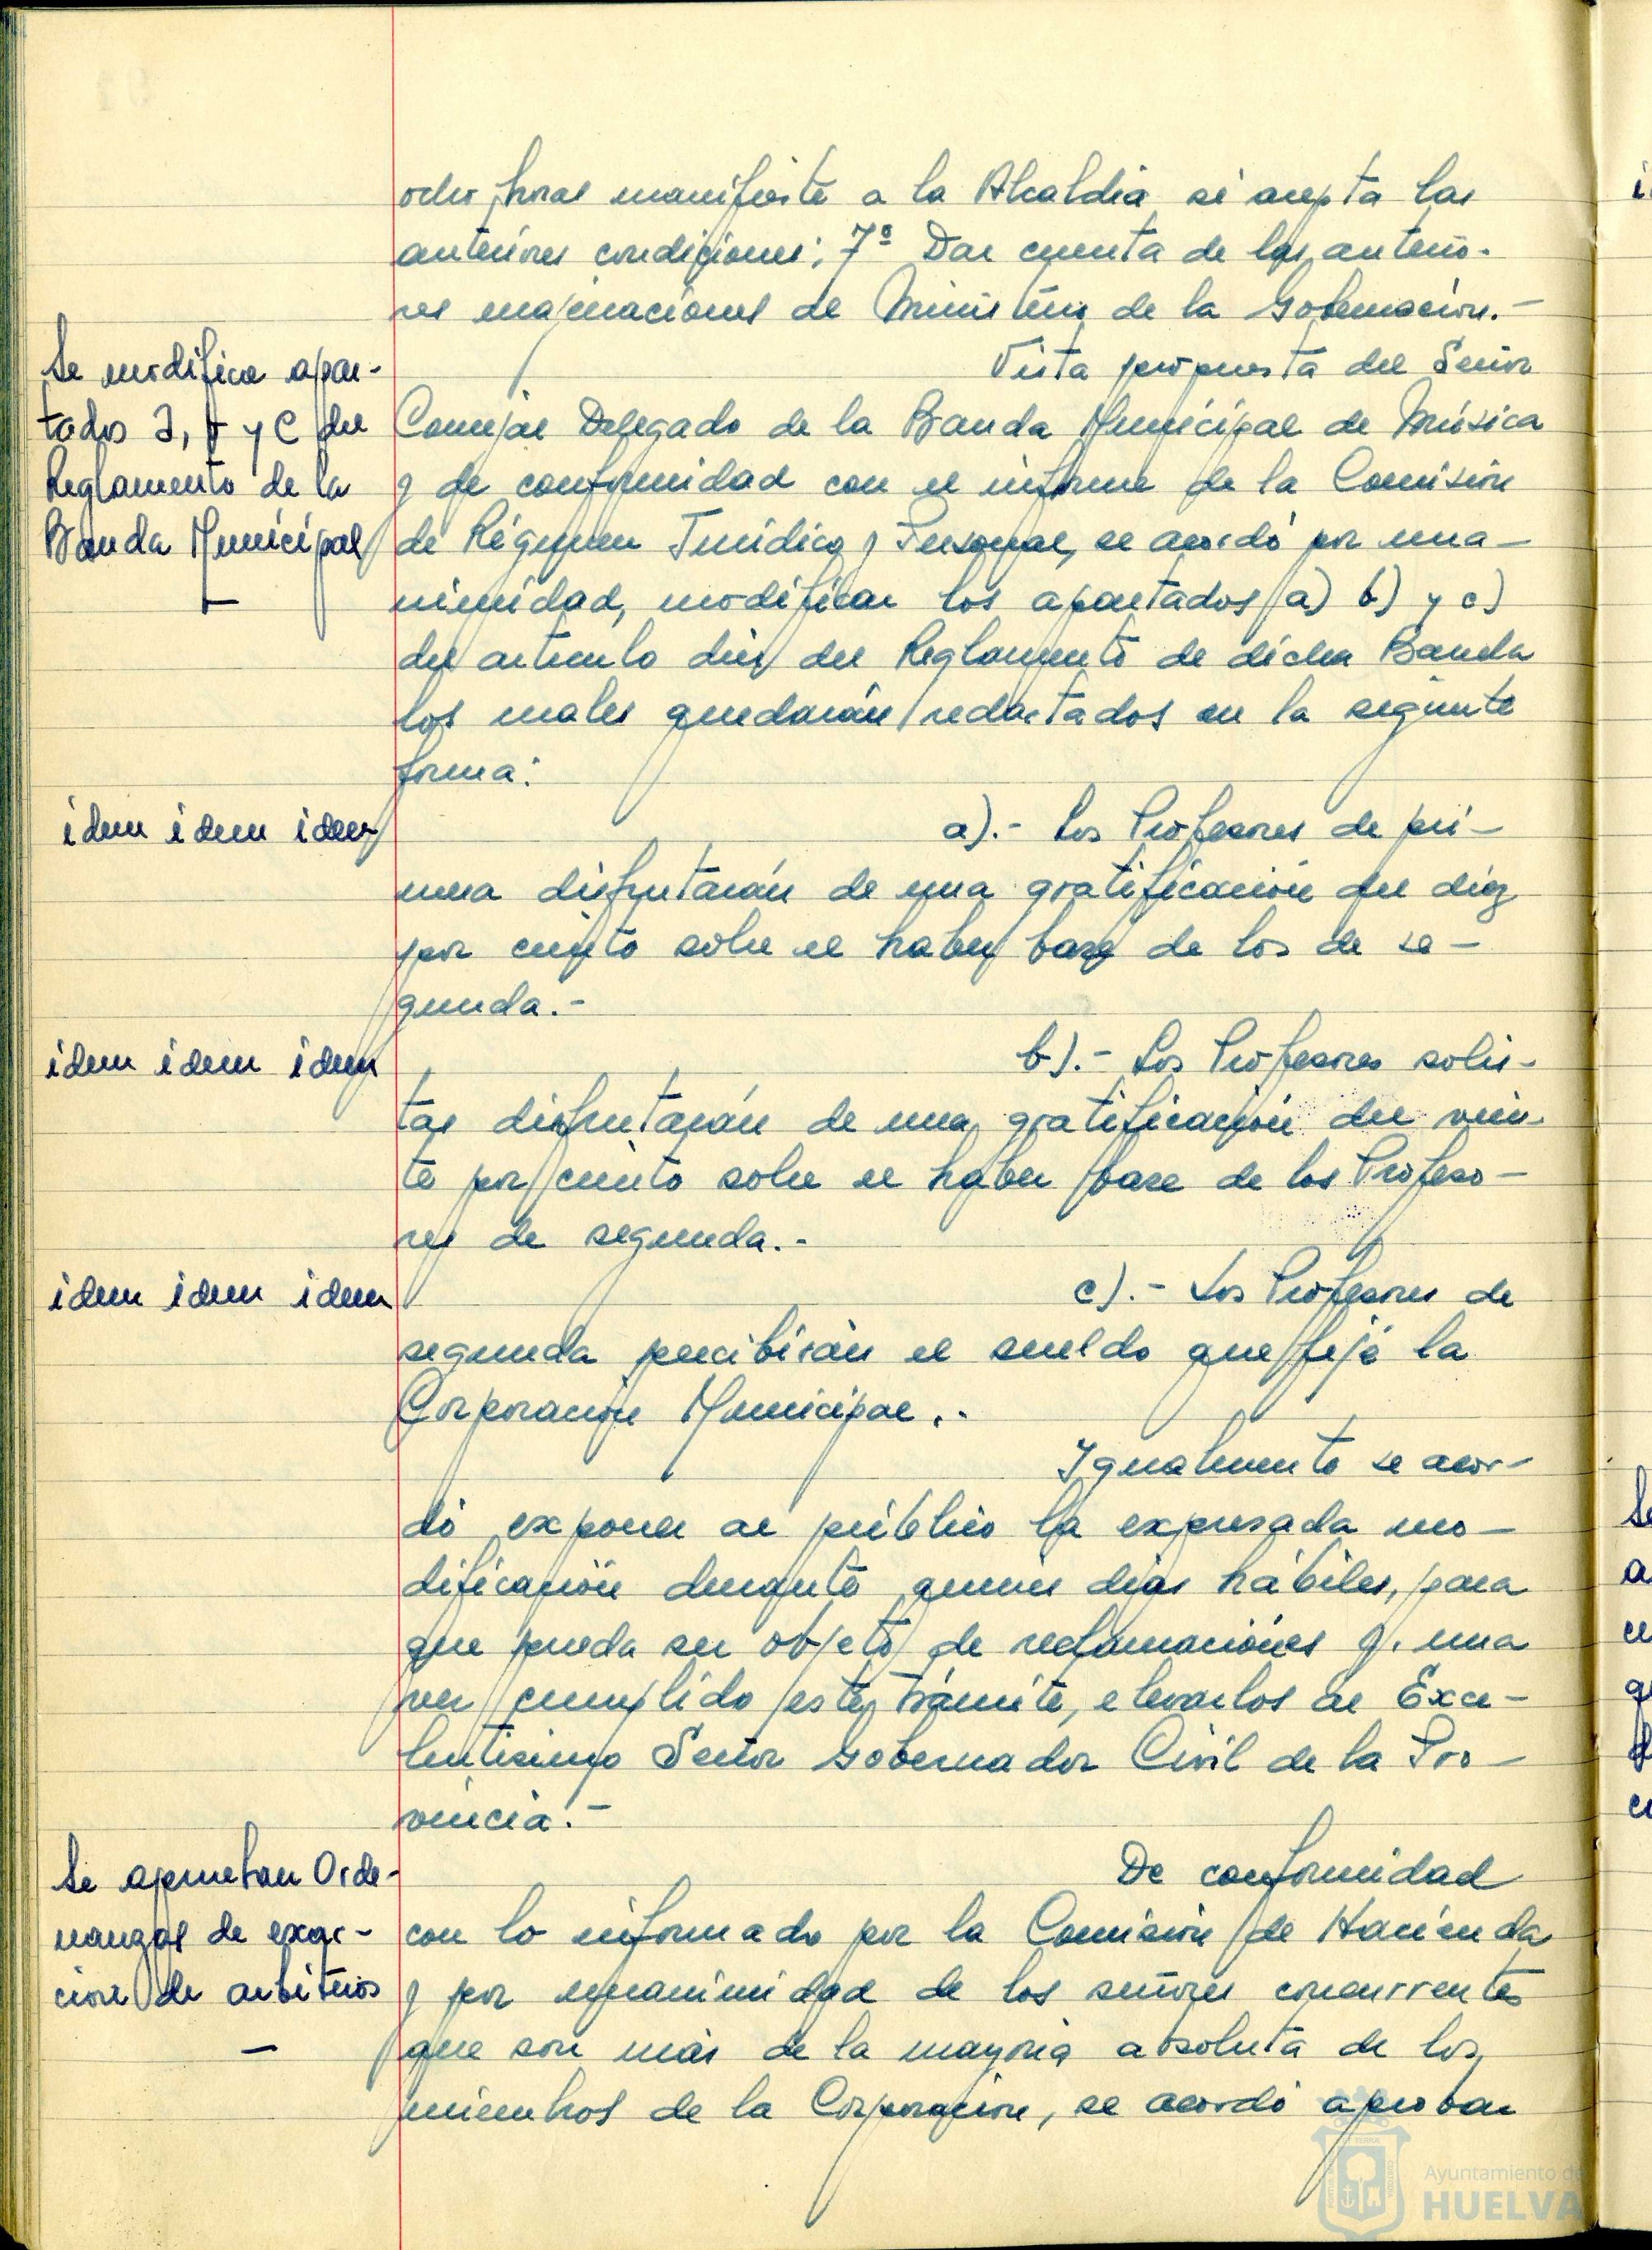 ocho horas manifieste a la Alcaldía si acepta las
anteriores condiciones; 7º Dar cuenta de las anterio-
res enajenaciones al Ministerio de la Gobernación.-
Se modifica apar-
tados a, b y c del
Reglamento de la
Banda Municipal
Vista propuesta del Señor
Concejal Delegado de la Banda Municipal de Música
y de conformidad con el informe de la Comisión
de Régimen Jurídico y Personal, se acordó por una-
nimidad, modificar los apartados a) b) y c)
del artículo diez del Reglamento de dicha Banda
los cuales quedarán redactados en la siguiente
forma:
idem idem idem
a).- Los Profesores de pri-
mera disfrutarán de una gratificación del diez
por ciento sobre el haber base de los de se-
gunda.-
idem idem idem
b).- Los Profesores solis-
tas disfrutarán de una gratificación del vein-
te por ciento sobre el haber base de los Profeso-
res de segunda.-
idem idem idem
c).- Los Profesores de
segunda percibirán el sueldo que fije la
Corporación Municipal.-
Igualmente se acor-
dó exponer al público la expresada mo-
dificación durante quince días hábiles, para
que pueda ser objeto de reclamaciones y, una
vez cumplido este trámite, elevarlos al Exce-
lentísimo Señor Gobernador Civil de la Pro-
vincia.-
Se aprueban Orde-
nanzas de exac-
ción de arbitrios
De conformidad
con lo informado por la Comisión de Hacienda
y por unanimidad de los señores concurrentes
que son más de la mayoría absoluta de los
miembros de la Corporación, se acordó aprobar
Ayuntamiento de
HUELVA